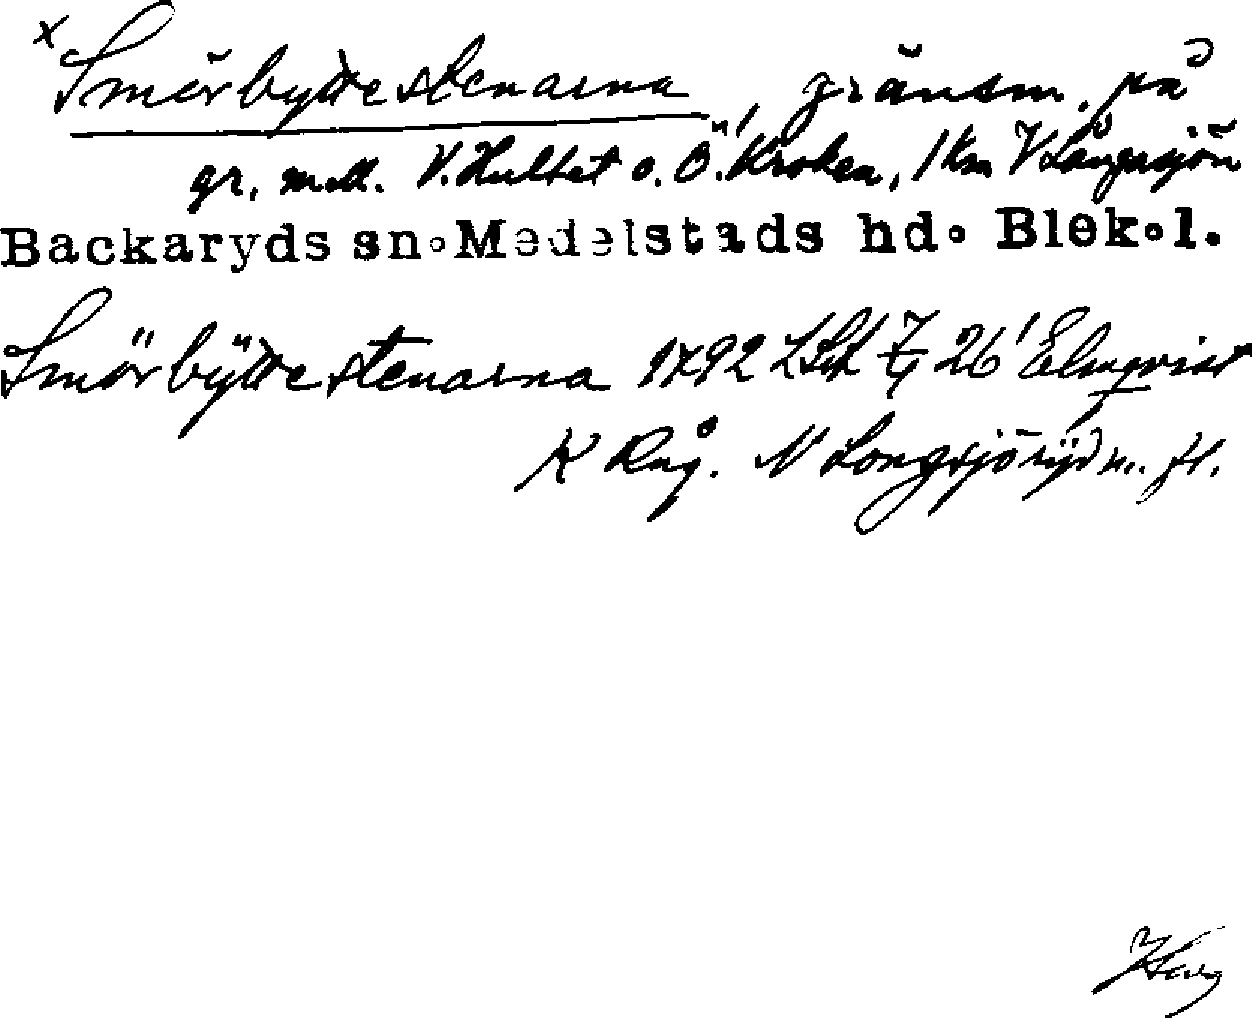 x Smörbyttestenarna, gränsm. på
gr. mell. V. Hultet o. Ö. Kroken, 1 km V Långasjön
Backaryds sn. Medelstads hd. Blek.l.
Smörbÿttestenarna 1792 LSA 26 Elmqvist
K Råg. N Longasjörÿd